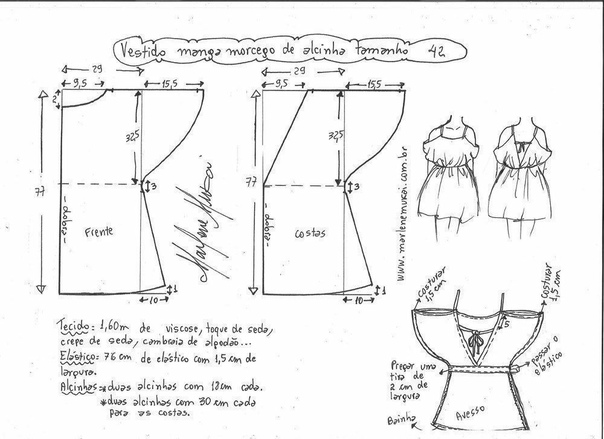 Vestido manga morcego de alcinha tamanho 42
29
9,5
15,5
2
32,5
77
3
-dobra-
Frente
1
10
Marlene Mukai
29
9,5
15,5
32,5
77
3
-dobra-
costas
1
10
www.marlenemukai.com.br
Tecido: 1,60m de viscose, toque de seda,
crepe de seda, cambraia de algodão...
Elástico: 76 cm de elástico com 1,5 cm de
largura.
Alcinhas: *duas alcinhas com 18cm cada.
*duas alcinhas com 30 cm cada
para as costas.
costurar
1,5 cm
costurar
1,5 cm
15
passar o
elástico
Pregar uma
tira de
2 cm de
largura
Avesso
Bainha